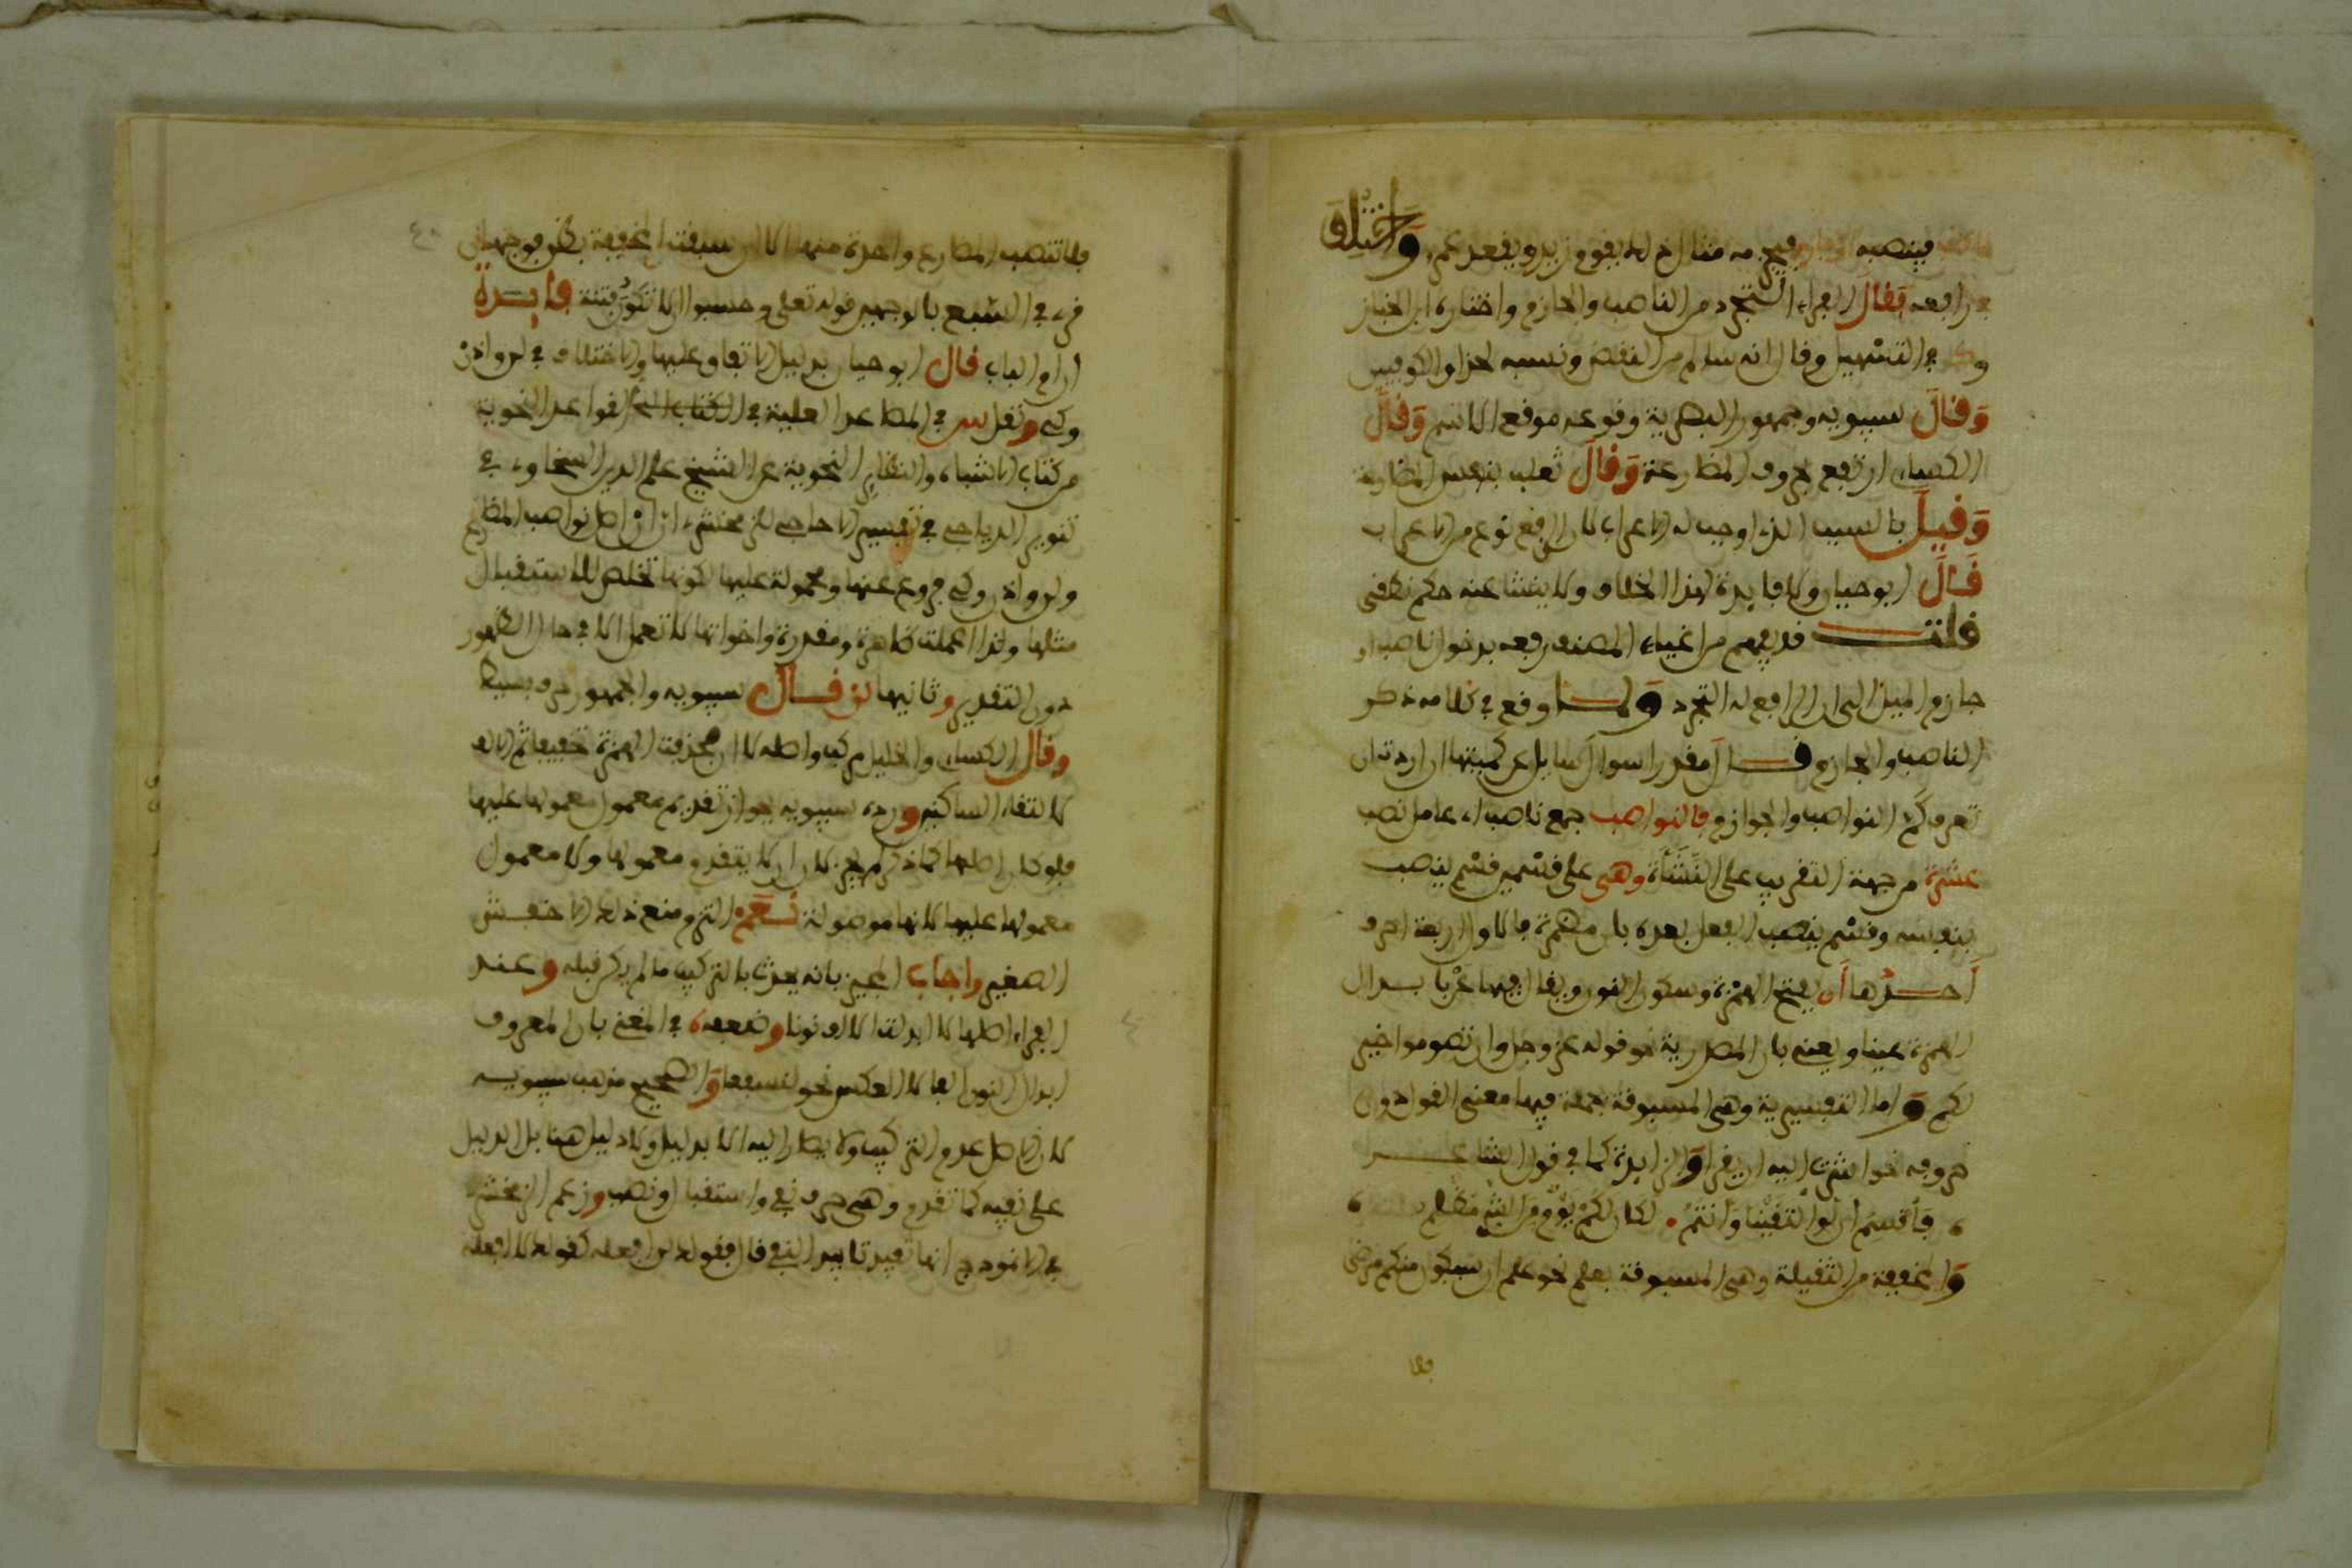 فينصبه فيجزمه مثال ذلك يقوم زيد ويقعد عمر واختلف
في رافعه فقال الفراء التجرد من الناصب والجازم واختاره ابن الخباز
وكذا في التسهيل وقال انه سالم من النقض ونسبه لحذاق الكوفيين
وقال سيبويه وجمهور البصرية وقوعه موقع الاسم وقال
الكسائي ارتفع بحروف المضارعة وقال ثعلب بنفس المضارعة
وقيل بالسبب الذي اوجب له الاعراب لان الرفع نوع من الاعراب
قال ابو حيان ولا فايدة لهذا الخلاف ولا ينشا عنه حكم نطقي
قلت قد يفهم من اغياء المصنف رفعه بدخول ناصب او
جازم الميل الى ان الرافع له التجرد ولما وقع في كلامه ذكر
الناصب والجازم قال مقدرا سوال سايل عن كميتها ان اردت ان
تعرف كم النواصب والجوازم فالنواصب جمع ناصب اي عامل نصب
عشرة من جهة التقريب على النشأة وهي على قسمين قسم ينصب
بنفسه وقسم ينصب الفعل بعده بان مضمرة فالاول اربعة احرف
احدها أن بفتح الهمزة وسكون النون ويقال فيها عن بابدال
الهمزة عينا ويعني بان المصدرية نحو قوله عز وجل وان تصوموا خير
لكم واما التفسيرية وهي المسبوقة بجملة فيها معنى القول دون
حروفه نحو اشرت اليه ان يفر والزايدة كما في قول الشاعر
فأقسم ان لو التقينا وأنتم لكان لكم يوم من الشر مظلم
والمخففة من الثقيلة وهي المسبوقة بعلم نحو علم ان سيكون منكم مرضى
فلا
فلا تنصب المضارع واحدة منها الا ان سبقت المخففة بظن فوجهان
قرئ في السبع بالوجهين قوله تعلى وحسبوا الا تكون فتنة فايدة
ان ام الباب قال ابو حيان بدليل الاتفاق عليها والاختلاف في لن واذن
وكي ونقل س في المصاعد العلية في القواعد النحوية
من كتاب الاشباه والنظاير النحوية عن الشيخ علم الدين السخاوي في
تنوير الدياجي في تفسير الاحاجي للزمخشري ان ان اصل نواصب المضارع
ولن واذن وكي فروع عنها ومحمولة عليها لكونها تخلص للاستقبال
مثلها ولذا اعملت ظاهرة ومقدرة واخواتها لا تعمل الا في حال الظهور
دون التقدير وثانيها لن قال سيبويه والجمهور حرف بسيط
وقال الكسائي والخليل مركبه واصله لا ان فحذفت الهمزة تخفيفا ثم الالف
لالتقاء الساكنين ورده سيبويه بجواز تقديم معمول معمولها عليها
فلو كان اصلها كما ذكر لم يجز لان ان لا يتقدم معمولها ولا معمول
معمولها عليها لانها موصولة نعم التزم منع ذلك الاخفش
الصغير واجاب المجيز بانه يحدث بالتركيب ما لم يكن قبله وعند
الفراء اصلها لا ابدلت الالف نونا وضعفه في المغني بان المعروف
ابدال النون الفا لا العكس نحو لنسفعا والصحيح مذهب سيبويه
لان الاصل عدم التركيب ولا يصار اليه الا بدليل ولا دليل هنا بل الدليل
على نفيه كما تقدم وهي حرف نفي واستقبال ونصب وزعم الزمخشري
في الانموذج انها تفيد تابيد النفي قال فقولك لن افعله كقولك لا افعله